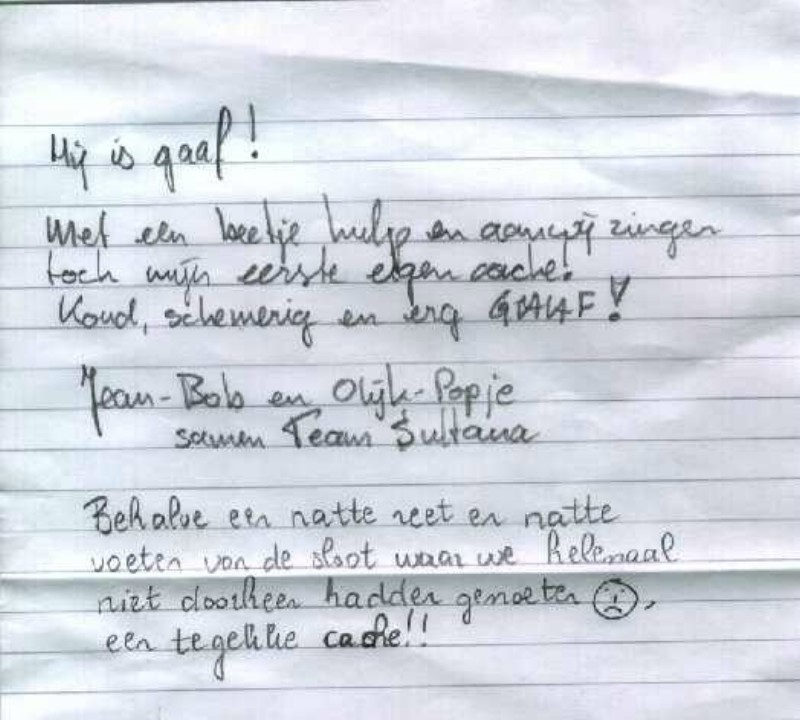 Hij is gaaf!
Met een beetje hulp en aanwijzingen
toch mijn eerste eigen cache!
Koud, schemerig en erg GAAAF!
Jean-Bob en Olijk-Popje
samen Team Sultana
Behalve een natte reet en natte
voeten van de sloot waar we helemaal
niet doorheen hadden gemoeten ☹,
een te gekke cache!!